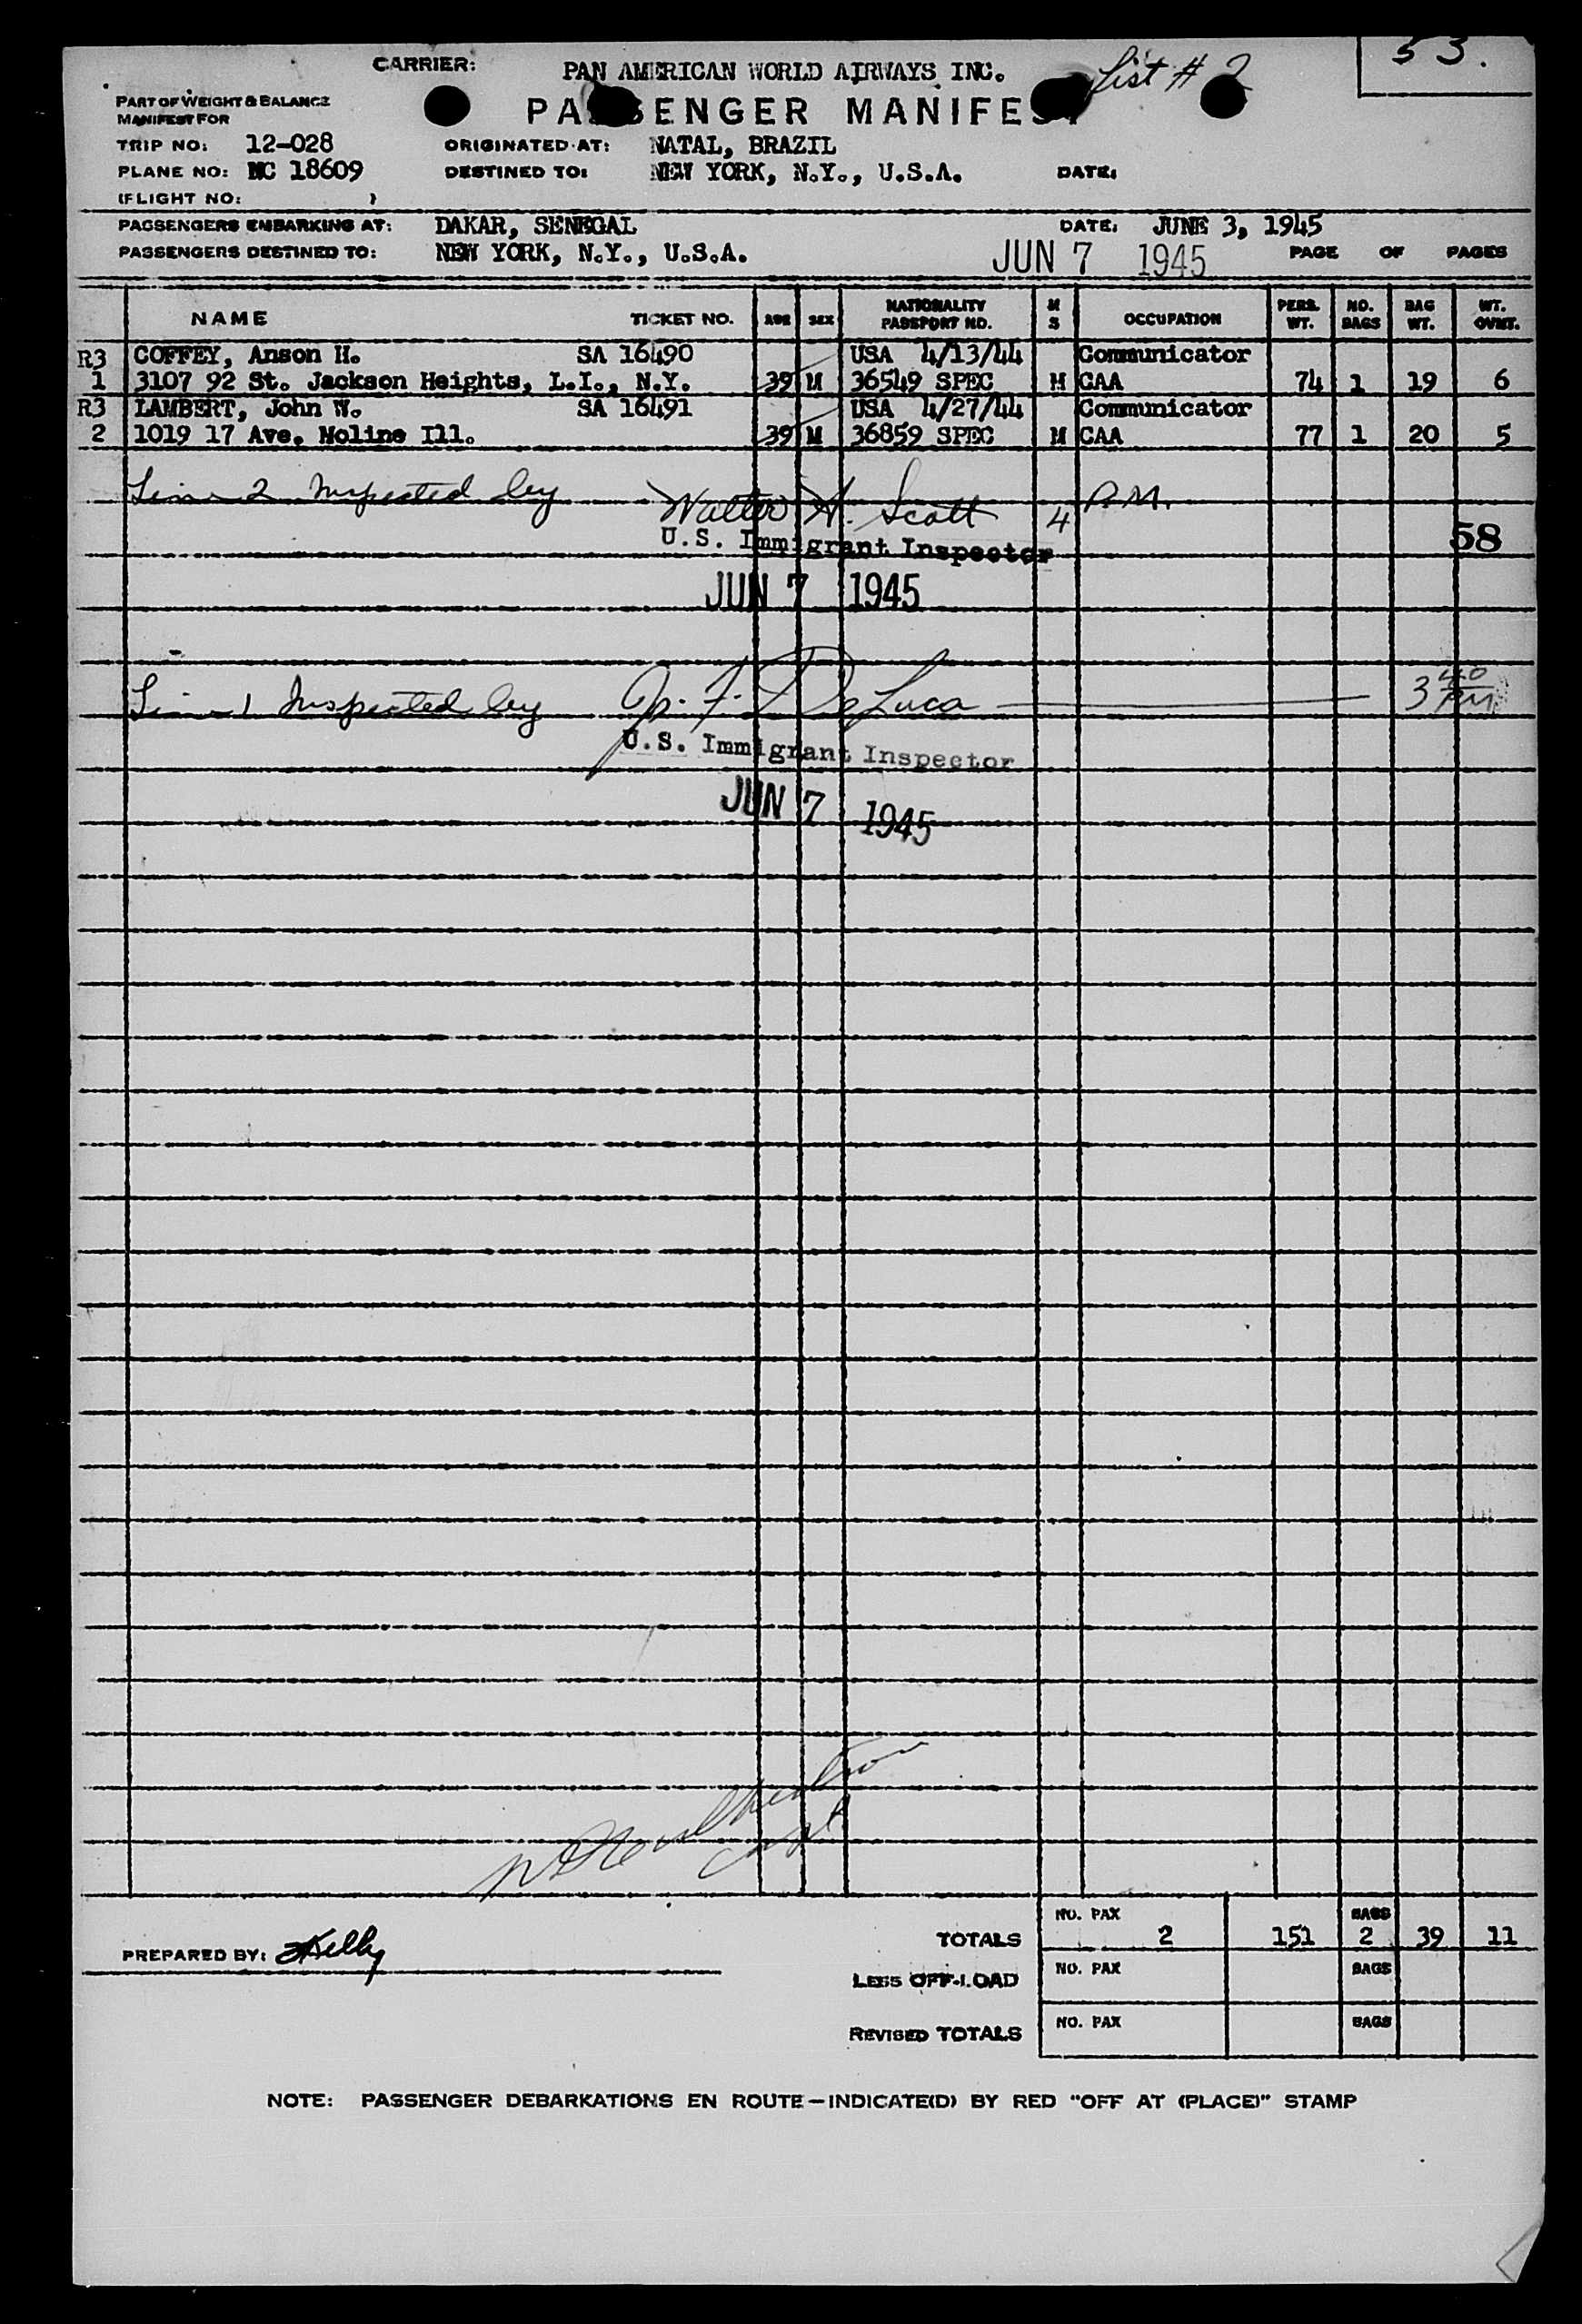 53.
CARRIER: PAN AMERICAN WORLD AIRWAYS INC. List # 2
PART OF WEIGHT & BALANCE PASSENGER MANIFEST
MANIFEST FOR
TRIP NO: 12-028 ORIGINATED AT: NATAL, BRAZIL
PLANE NO: NC 18609 DESTINED TO: NEW YORK, N.Y., U.S.A. DATE:
(FLIGHT NO: )
PASSENGERS EMBARKING AT: DAKAR, SENEGAL DATE: JUNE 3, 1945
PASSENGERS DESTINED TO: NEW YORK, N.Y., U.S.A. JUN 7 1945 PAGE OF PAGES
NAME TICKET NO. AGE SEX NATIONALITY PASSPORT NO. M S OCCUPATION PERS. WT. NO. BAGS BAG WT. WT. OVWT.
R3 COFFEY, Anson H. SA 16490 USA 4/13/44 Communicator
1 3107 92 St. Jackson Heights, L.I., N.Y. 39 M 36549 SPEC M CAA 74 1 19 6
R3 LAMBERT, John W. SA 16491 USA 4/27/44 Communicator
2 1019 17 Ave. Moline Ill. 39 M 36859 SPEC M CAA 77 1 20 5
Line 2 Inspected by Walter H. Scott 4 P.M.
U.S. Immigrant Inspector 58
JUN 7 1945
Line 1 Inspected by F. DeLuca 3 40 PM
U.S. Immigrant Inspector
JUN 7 1945
Capt
PREPARED BY: Kelly TOTALS NO. PAX 2 151 BAGS 2 39 11
LESS OFF-LOAD NO. PAX BAGS
REVISED TOTALS NO. PAX BAGS
NOTE: PASSENGER DEBARKATIONS EN ROUTE—INDICATE(D) BY RED "OFF AT (PLACE)" STAMP